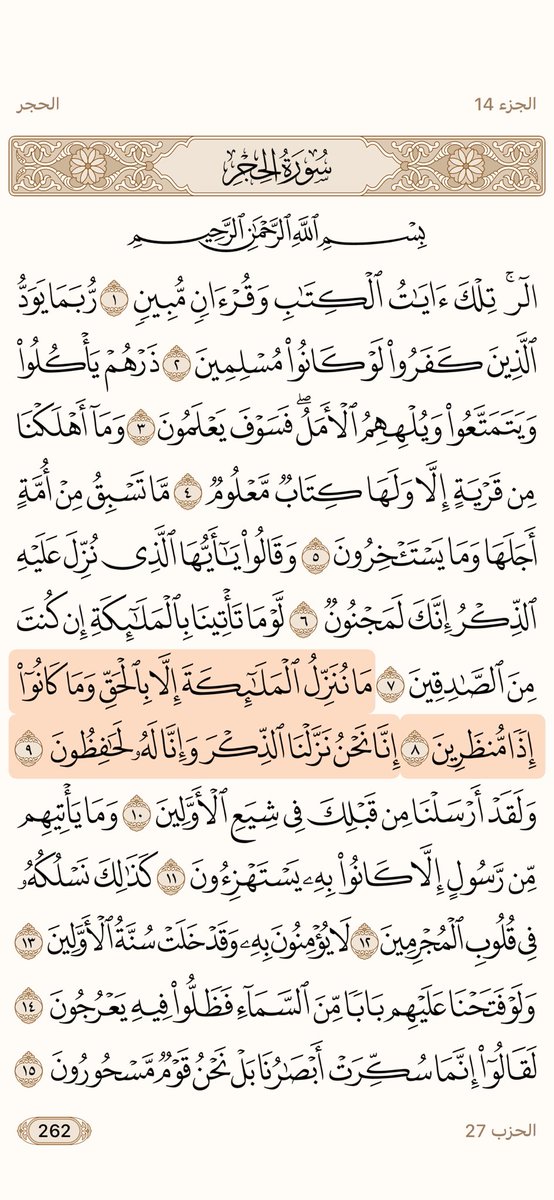 الجزء 14
الحجر
سُورَةُ الحِجْرِ
بِسْمِ ٱللَّهِ ٱلرَّحْمَٰنِ ٱلرَّحِيمِ
الٓرۚ تِلْكَ ءَايَٰتُ ٱلْكِتَٰبِ وَقُرْءَانٍ مُّبِينٍ ١ رُّبَمَا يَوَدُّ
ٱلَّذِينَ كَفَرُوا۟ لَوْ كَانُوا۟ مُسْلِمِينَ ٢ ذَرْهُمْ يَأْكُلُوا۟
وَيَتَمَتَّعُوا۟ وَيُلْهِهِمُ ٱلْأَمَلُۖ فَسَوْفَ يَعْلَمُونَ ٣ وَمَآ أَهْلَكْنَا
مِن قَرْيَةٍ إِلَّا وَلَهَا كِتَابٌ مَّعْلُومٌ ٤ مَّا تَسْبِقُ مِنْ أُمَّةٍ
أَجَلَهَا وَمَا يَسْتَـْٔخِرُونَ ٥ وَقَالُوا۟ يَٰٓأَيُّهَا ٱلَّذِى نُزِّلَ عَلَيْهِ
ٱلذِّكْرُ إِنَّكَ لَمَجْنُونٌ ٦ لَّوْ مَا تَأْتِينَا بِٱلْمَلَٰٓئِكَةِ إِن كُنتَ
مِنَ ٱلصَّٰدِقِينَ ٧ مَا نُنَزِّلُ ٱلْمَلَٰٓئِكَةَ إِلَّا بِٱلْحَقِّ وَمَا كَانُوٓا۟
إِذًا مُّنظَرِينَ ٨ إِنَّا نَحْنُ نَزَّلْنَا ٱلذِّكْرَ وَإِنَّا لَهُۥ لَحَٰفِظُونَ ٩
وَلَقَدْ أَرْسَلْنَا مِن قَبْلِكَ فِى شِيَعِ ٱلْأَوَّلِينَ ١٠ وَمَا يَأْتِيهِم
مِّن رَّسُولٍ إِلَّا كَانُوا۟ بِهِۦ يَسْتَهْزِءُونَ ١١ كَذَٰلِكَ نَسْلُكُهُۥ
فِى قُلُوبِ ٱلْمُجْرِمِينَ ١٢ لَا يُؤْمِنُونَ بِهِۦ وَقَدْ خَلَتْ سُنَّةُ ٱلْأَوَّلِينَ ١٣
وَلَوْ فَتَحْنَا عَلَيْهِم بَابًا مِّنَ ٱلسَّمَآءِ فَظَلُّوا۟ فِيهِ يَعْرُجُونَ ١٤
لَقَالُوٓا۟ إِنَّمَا سُكِّرَتْ أَبْصَٰرُنَا بَلْ نَحْنُ قَوْمٌ مَّسْحُورُونَ ١٥
الحزب 27
262